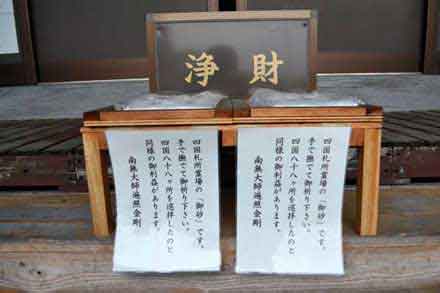 浄財
四国札所霊場の「御砂」です。
手で撫でて御祈り下さい。
四国八十八ヶ所を巡拝したのと
同様の御利益があります。
南無大師遍照金剛
四国札所霊場の「御砂」です。
手で撫でて御祈り下さい。
四国八十八ヶ所を巡拝したのと
同様の御利益があります。
南無大師遍照金剛